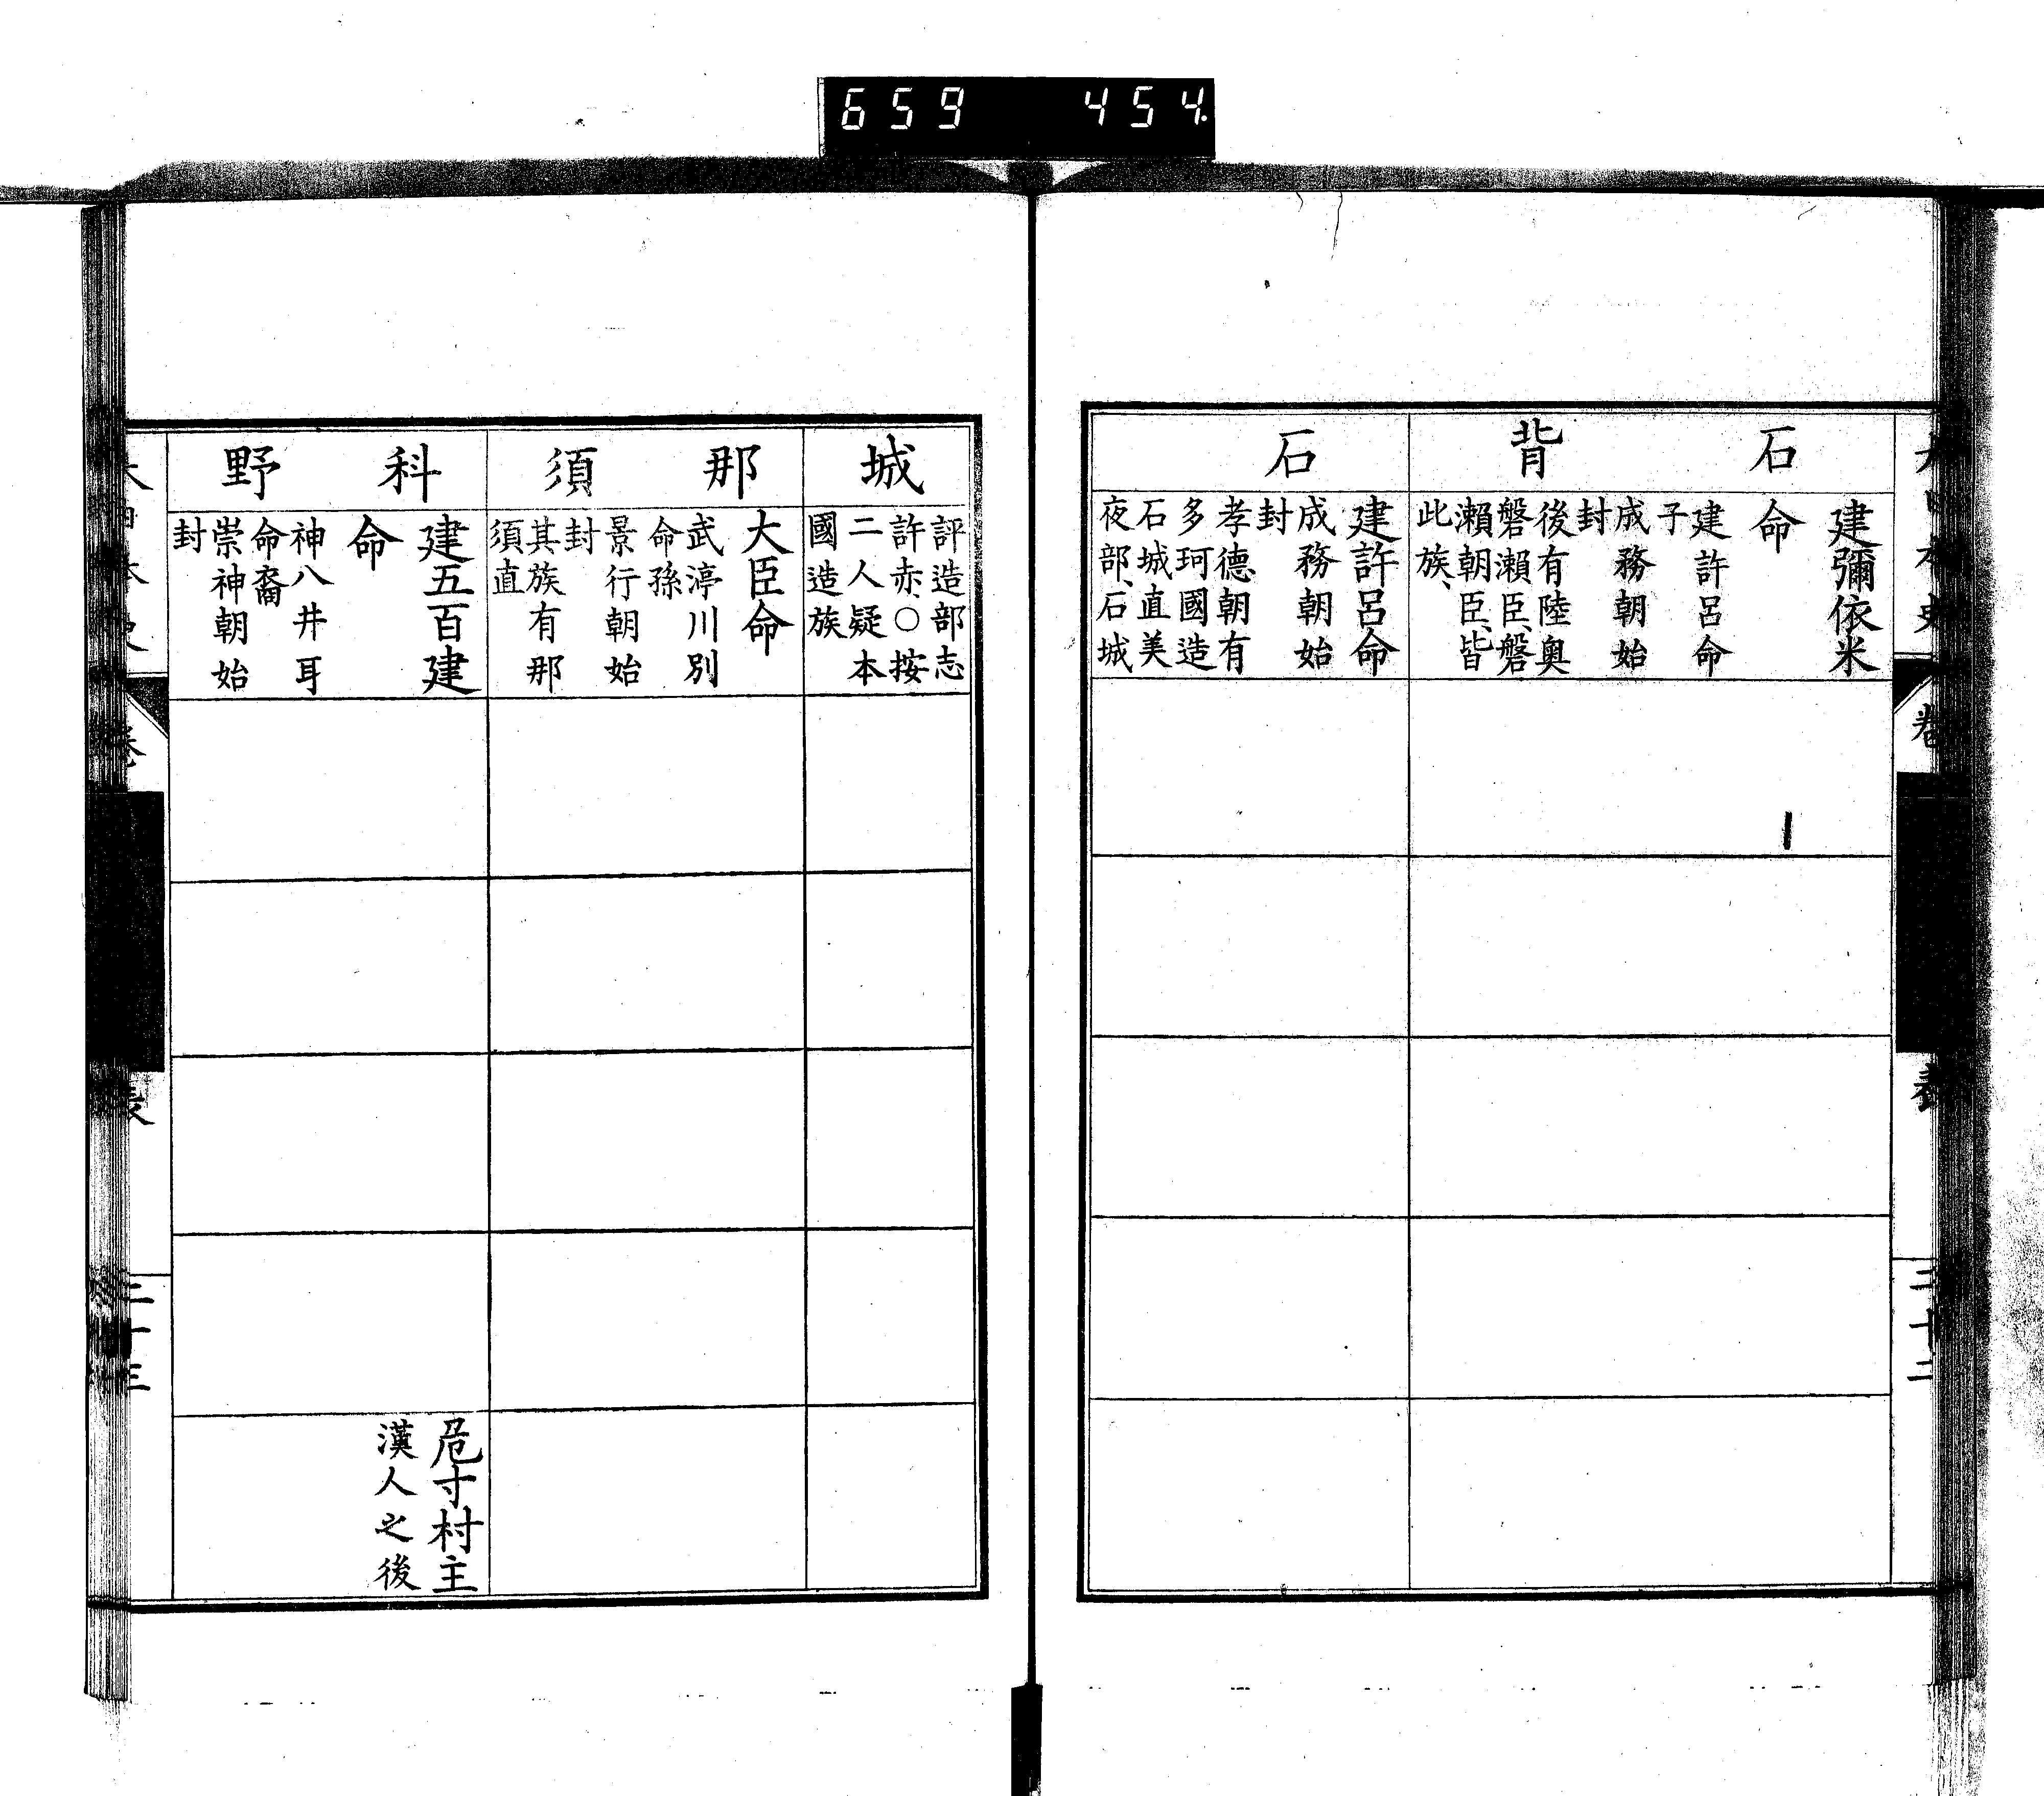 659 454.
石背
建彌依米
命
建許呂命
子
成務朝始
封
後有陸奧
磐瀨臣、磐
瀨朝臣、皆
此族、
石
建許呂命
成務朝始
封
孝德朝有
多珂國造
石城直美
夜部、石城
城
評造部志
許赤、○按
二人疑本
國造族
那須
大臣命
武渟川別
命孫
景行朝始
封
其族有那
須直
科野
建五百建
命
神八井耳
命裔
崇神朝始
封
危寸村主
漢人之後